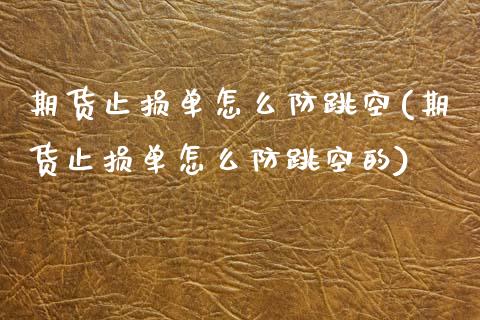 期货止损单怎么防跳空(期
货止损单怎么防跳空的)